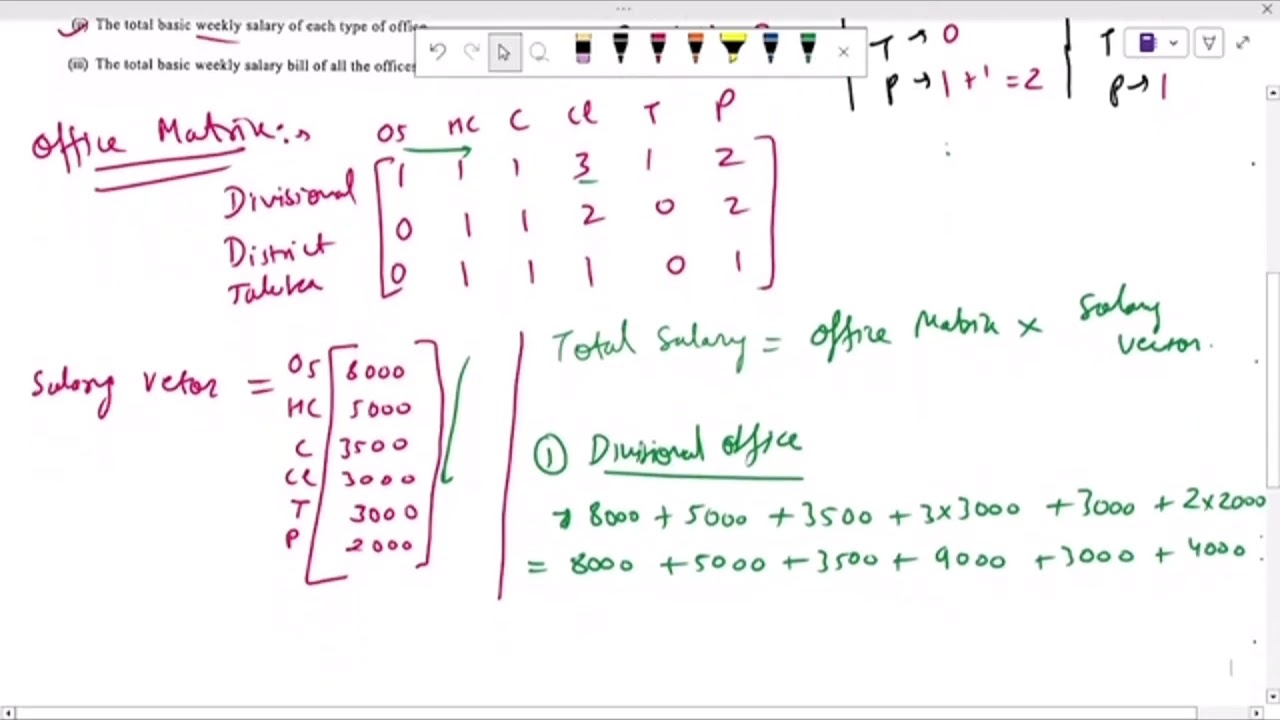 (ii) The total basic weekly salary of each type of office
(iii) The total basic weekly salary bill of all the offices
T → 0
P → 1 + 1 = 2
T
P → 1
Office Matrix:→
OS HC C Cl T P
Divisional 1 1 1 3 1 2
District 0 1 1 2 0 2
Taluka 0 1 1 1 0 1
Total Salary = Office Matrix × Salary Vector.
Salary Vetor =
OS 8000
HC 5000
C 3500
Cl 3000
T 3000
P 2000
① Divisional office
→ 8000 + 5000 + 3500 + 3×3000 + 3000 + 2×2000
= 8000 + 5000 + 3500 + 9000 + 3000 + 4000